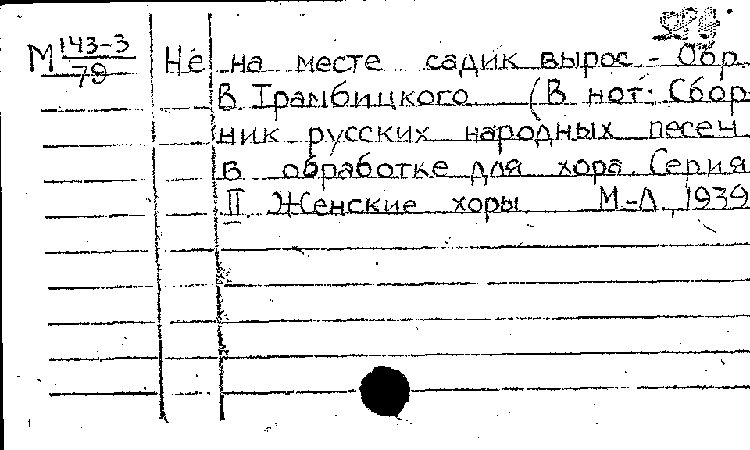 М 143-3
79
Не на месте садик вырос - Обр.
В Трамбицкого (В нот: Сбор-
ник русских народных песен
в обработке для хора. Серия
II Женские хоры М-Л 1939